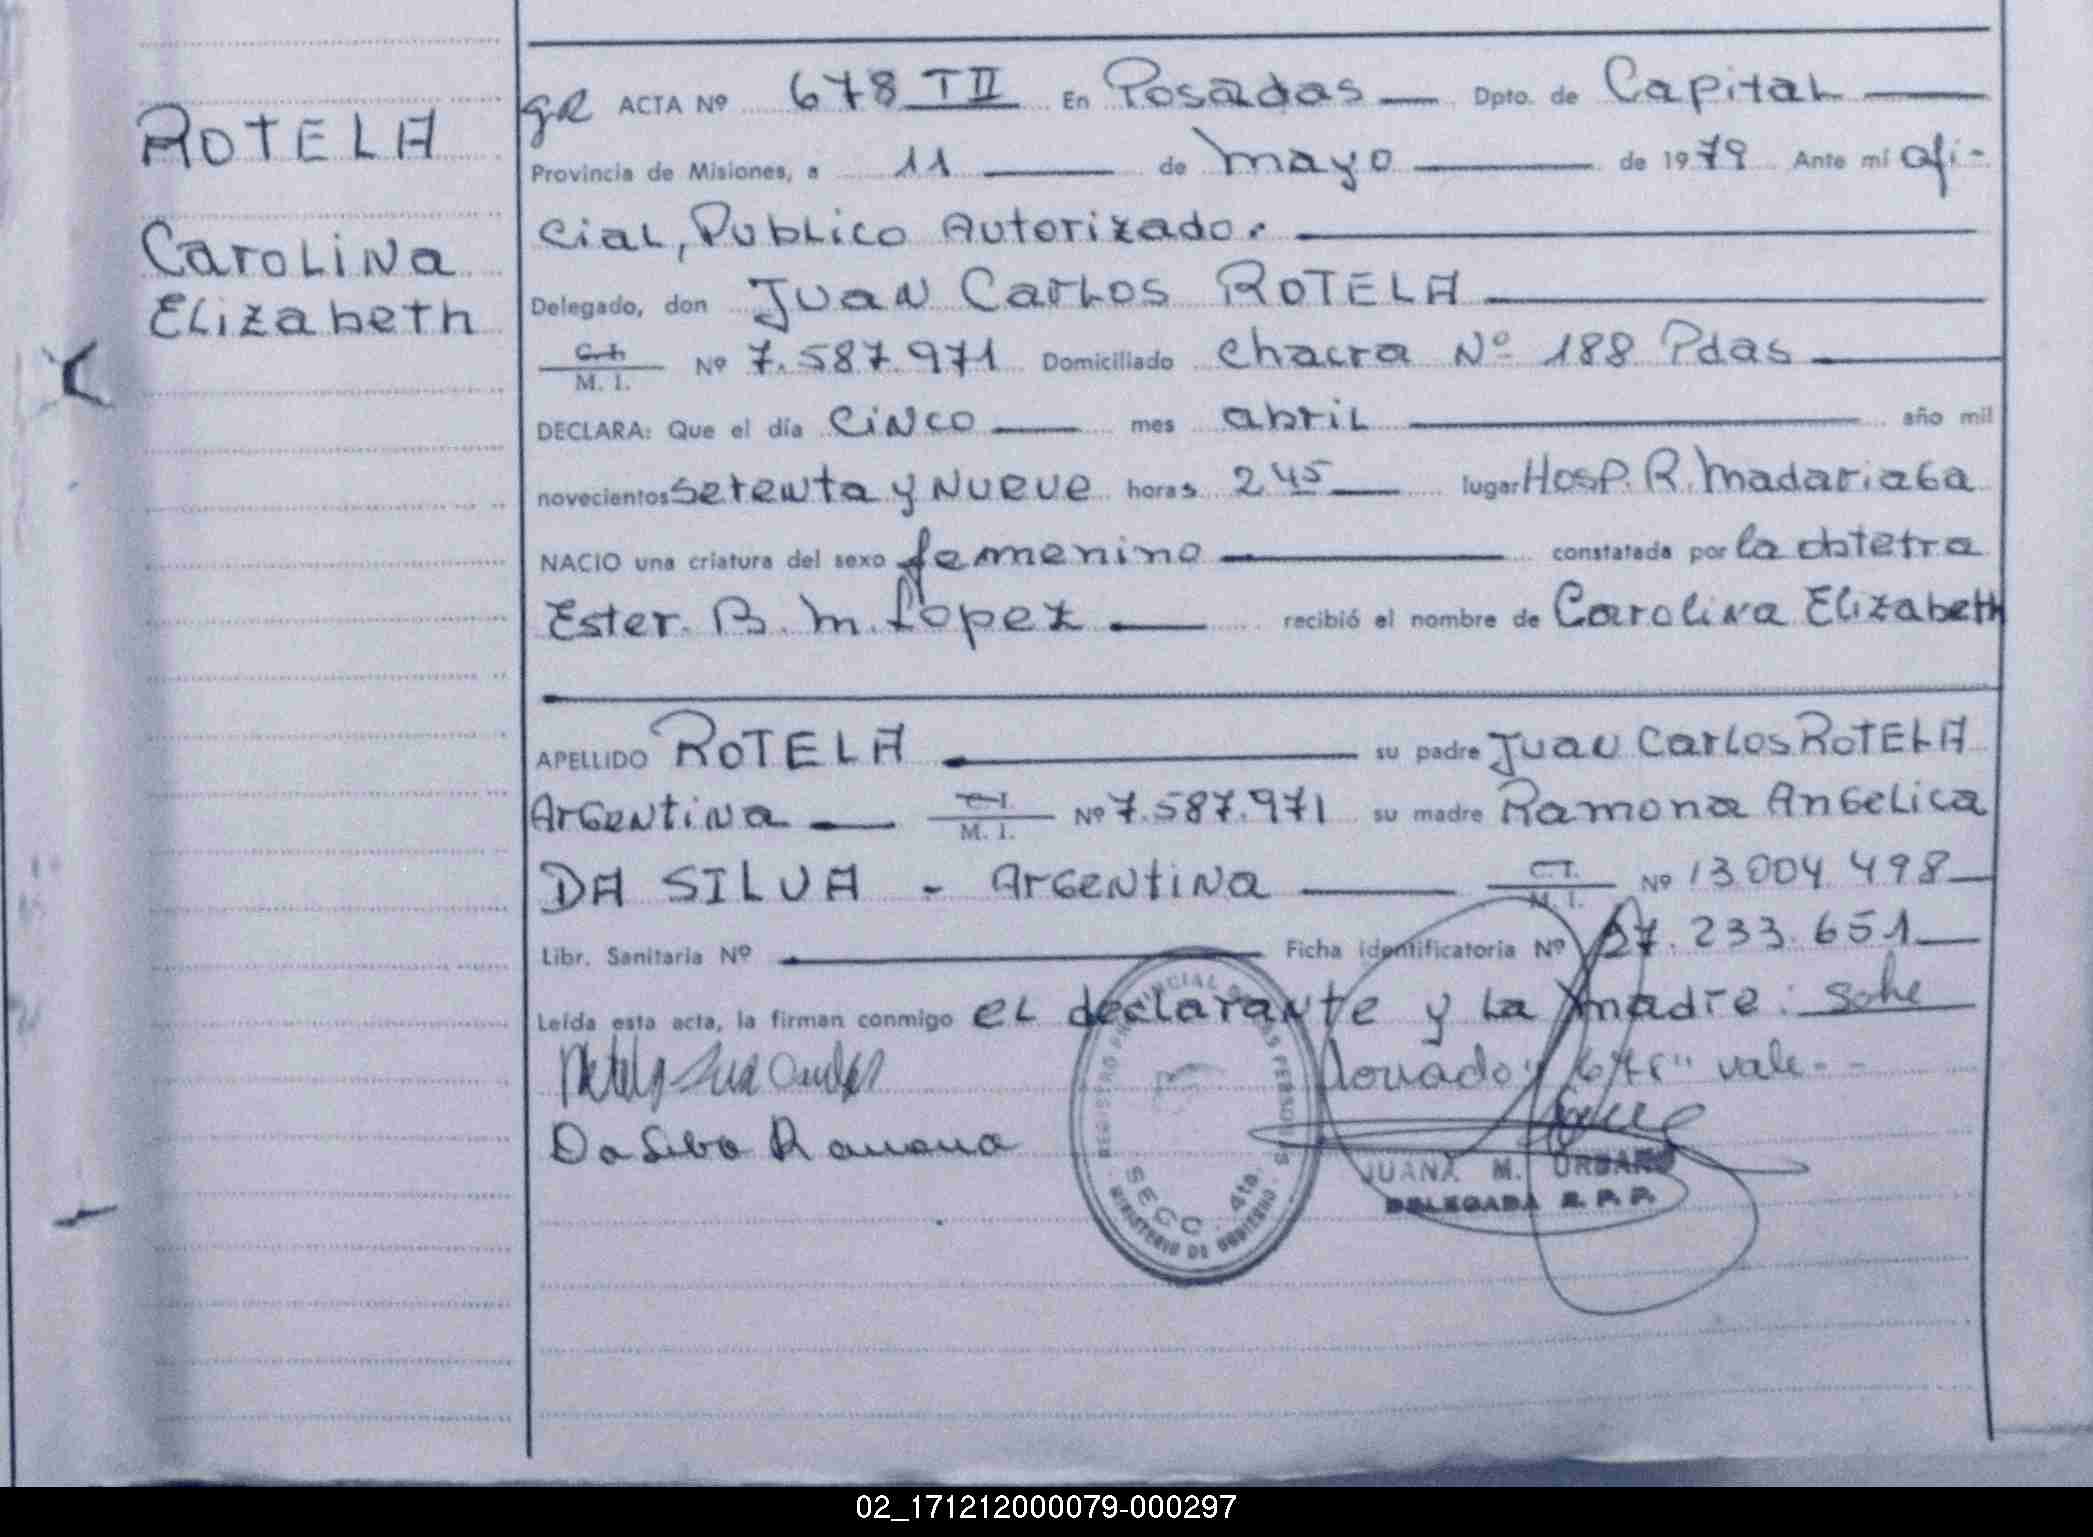 ROTELA
Carolina
Elizabeth
GR ACTA Nº 678 TII En Posadas Dpto. de Capital
Provincia de Misiones, a 11 de mayo de 1979 Ante mi ofi-
cial, Publico Autorizado.
Delegado, don Juan Carlos ROTELA
C.I. M. I. Nº 7.587.971 Domiciliado Chacra Nº 188 Pdas
DECLARA: Que el día cinco mes abril año mil
novecientos setenta y nueve horas 2 45 lugar Hosp. R. Madariaga
NACIO una criatura del sexo femenino constatada por la obtetra
Ester. B. M. Lopez recibió el nombre de Carolina Elizabeth
APELLIDO ROTELA su padre Juan Carlos ROTELA
Argentina C.I. M. I. Nº 7.587.971 su madre Ramona Angelica
DA SILVA - Argentina C.I. M. I. Nº 13.004.498
Libr. Sanitaria Nº Ficha identificatoria Nº 27.233.651
Leída esta acta, la firman conmigo el declarante y la madre: sobre
Rotela Juan Carlos
Da Silva Ramona
REGISTRO PROVINCIAL DE LAS PERSONAS
SECC. 4ta.
MINISTERIO DE GOBIERNO
JUANA M. URBANO
DELEGADA R. P. P.
02_171212000079-000297